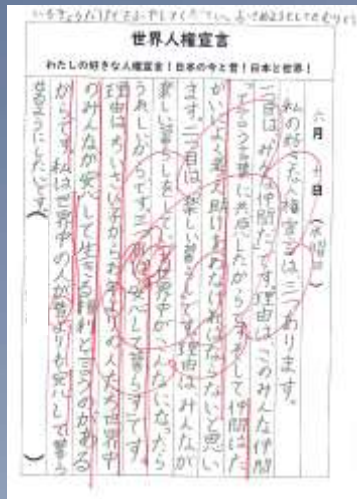 世界人権宣言
わたしの好きな人権宣言!日本の今と昔!日本と世界!
六月 日(水曜日)
私の好きな人権宣言は三つあります。
一つ目は「みんな仲間だ」です。理由は、このみんな仲間
という言葉に共感したからです。そして仲間はた
がいによく考え助けあわなければならないと思い
ます。二つ目は「楽しい暮らし」です。理由はみんなが
楽しい暮らしをして、世界中がこんなになったら
うれしいからです。三つ 安心して暮らす」です。
理由はちいさい子からお年 の人たち世界中
のみんなが安心して生きる権利と言うのがある
からです。私は世界中の人が昔よりも安心して暮ら
せるようにしたいです。